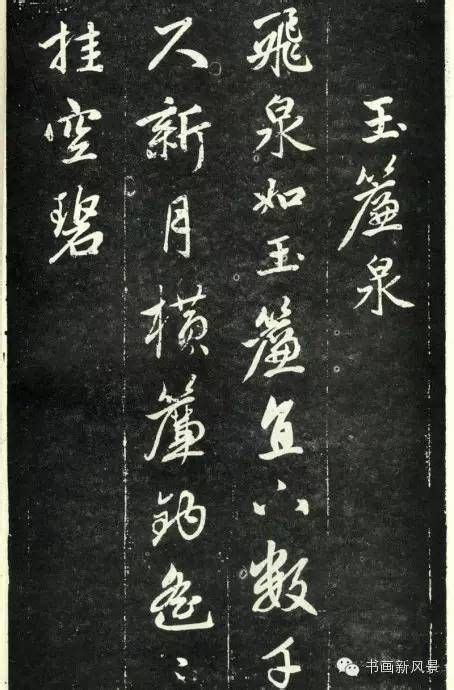 玉簾泉
飛泉如玉簾直下數千
尺新月橫簾鈎遙〻
挂空碧
书画新风景